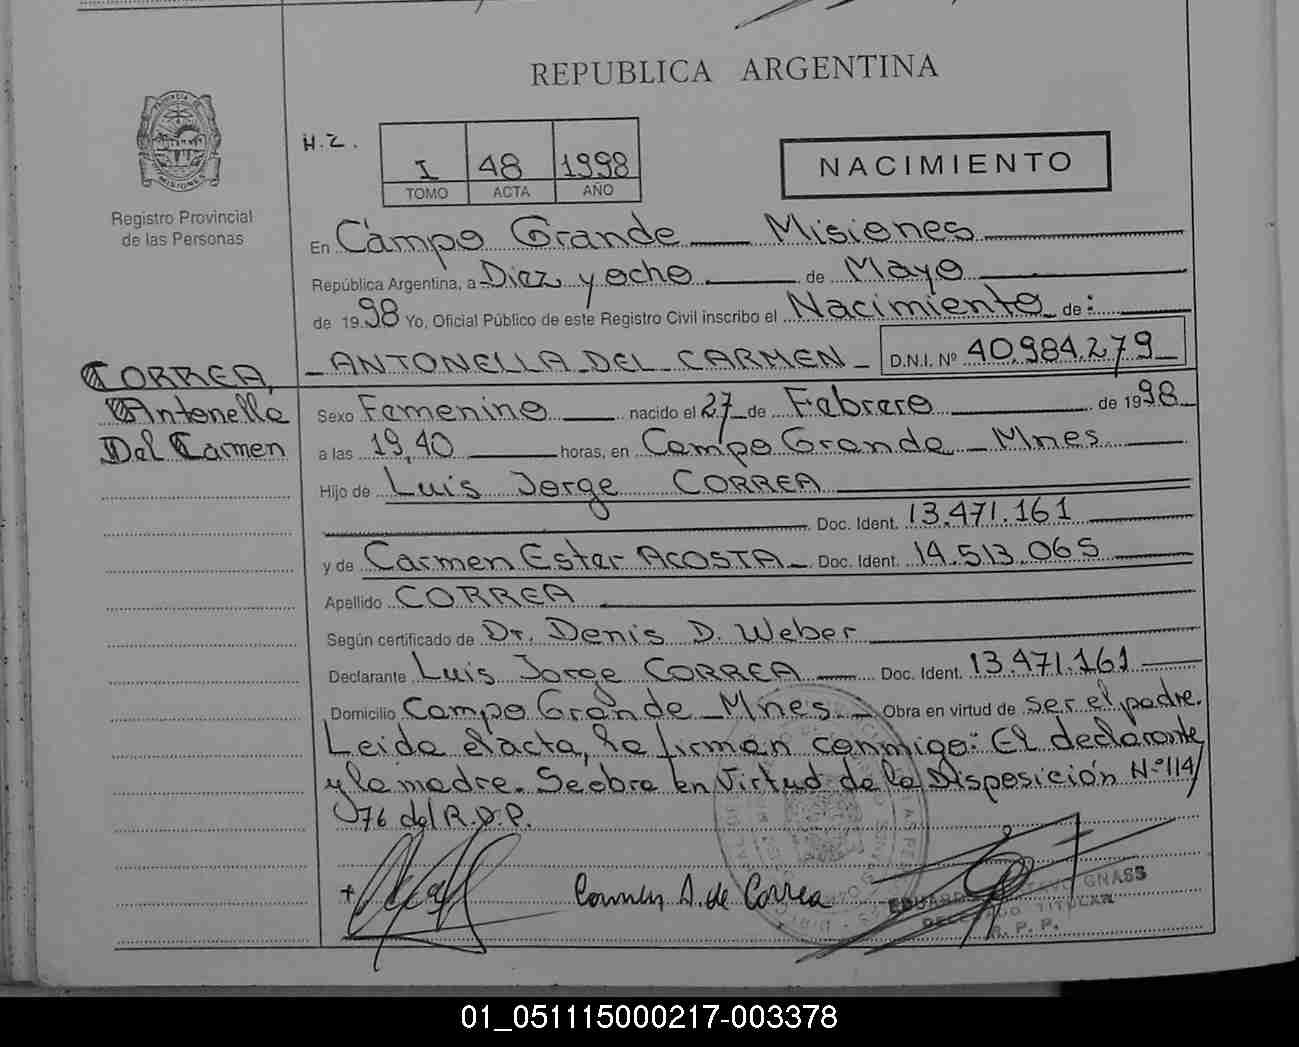 REPUBLICA ARGENTINA
PROVINCIA DE MISIONES
Registro Provincial
de las Personas
H.Z.
I 48 1998
TOMO ACTA AÑO
NACIMIENTO
En Campo Grande Misiones
República Argentina, a Diez y ocho de Mayo
de 1998 Yo, Oficial Público de este Registro Civil inscribo el Nacimiento de:
CORREA,
Antonella
Del Carmen
ANTONELLA DEL CARMEN D.N.I. Nº 40.984.279
Sexo Femenino nacido el 27 de Febrero de 1998
a las 19,40 horas, en Campo Grande - Mnes
Hijo de Luis Jorge CORREA
Doc. Ident. 13.471.161
y de Carmen Ester ACOSTA Doc. Ident. 14.513.065
Apellido CORREA
Según certificado de Dr. Denis D. Weber
Declarante Luis Jorge CORREA Doc. Ident. 13.471.161
Domicilio Campo Grande - Mnes. Obra en virtud de ser el padre.
Leida el acta, la firman conmigo: El declarante
y la madre. Se obra en Virtud de la Disposición Nº 114/
76 del R.P.P.
Carmen A. de Correa
EDUARDO GUSTAVO GNASS
DELEGADO TITULAR
R. P. P.
01_051115000217-003378